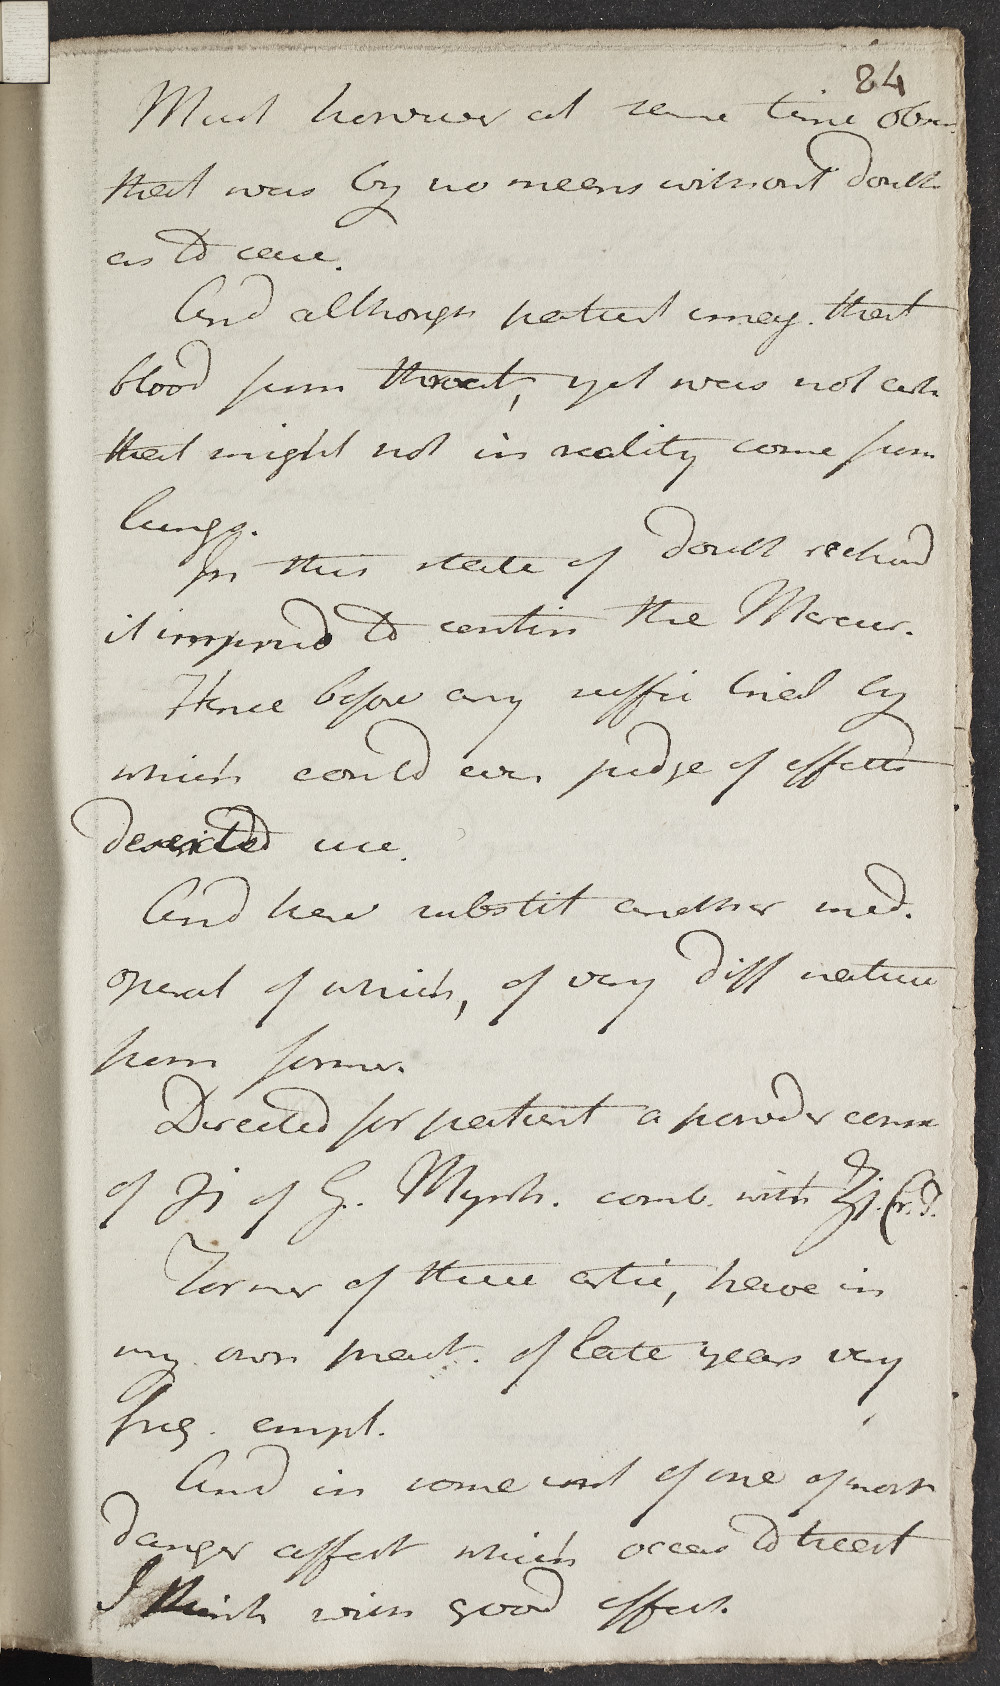 84
Must however at same time obser
that was by no means without doubt
as to case.
And although patient imag. that
blood from throat, yet was not cert
that might not in reality come from
lungs.
In this state of doubt reckond
it imprud to contin the Mercur.
Hence before any suffic tried by
which could even judge of effects
deserted use.
And have substit another med.
operat of which, of very diff nature
from former.
Directed for patient a powder cons
of ʒi of G. Myrrh. comb. with ʒj. Cr. T.
Former of these artic, have in
my own pract. of late years very
freq. empl.
And in some inst of one of most
danger affect which occas to treat
I think with good effect.